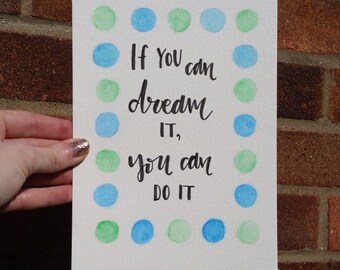 If you can
dream
IT,
you can
DO IT